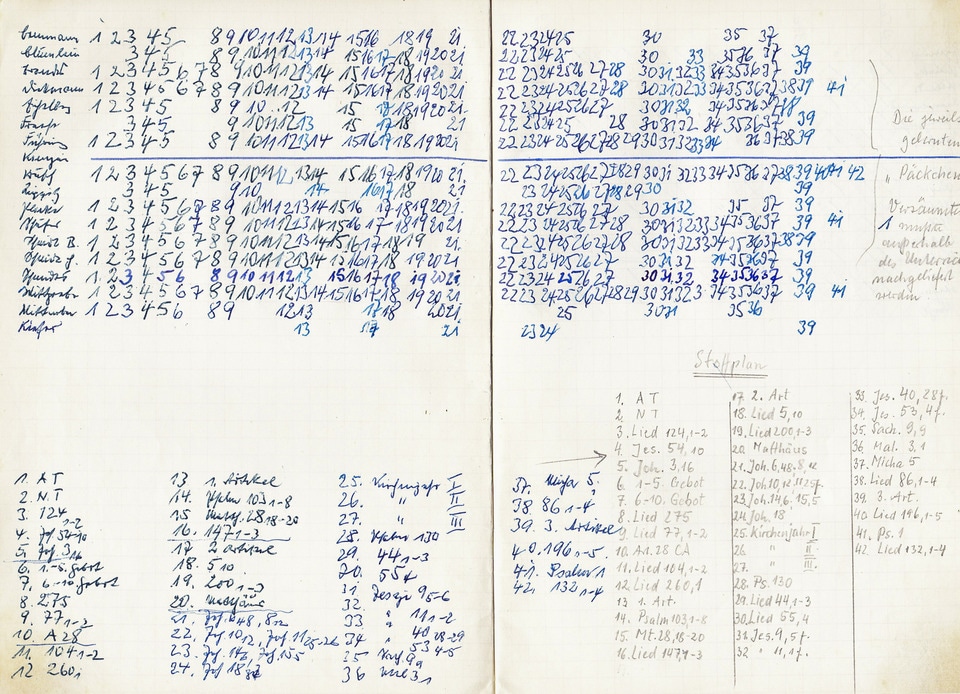 1 2 3 4 5 8 9 10 11 12 13 14 15 16 18 19 21
3 4 5 8 9 10 11 12 13 14 15 16 17 18 19 20 21
Brandt 1 2 3 4 5 6 7 8 9 10 11 12 13 14 15 16 17 18 19 20 21
1 2 3 4 5 6 7 8 9 10 11 12 13 14 15 16 17 18 19 20 21
1 2 3 4 5 8 9 10 12 15 17 18 19 20 21
3 4 5 9 10 11 12 13 15 17 18 21
1 2 3 4 5 8 9 10 11 12 13 14 15 16 17 18 19 20 21
1 2 3 4 5 6 7 8 9 10 11 12 13 14 15 16 17 18 19 20 21
3 4 5 9 10 14 16 17 18 21
1 2 3 4 5 6 7 8 9 10 11 12 13 14 15 16 17 18 19 20 21
1 2 3 4 5 6 7 8 9 10 11 12 13 14 15 16 17 18 19 20 21
1 2 3 4 5 6 7 8 9 10 11 12 13 14 15 16 17 18 19 21
1 2 3 4 5 6 7 8 9 10 11 12 13 14 15 16 17 18 19 20 21
1 2 3 4 5 6 8 9 10 11 12 13 15 16 17 18 19 20 21
1 2 3 4 5 6 7 8 9 10 11 12 13 14 15 16 17 18 19 20 21
1 2 3 4 5 6 8 9 12 13 17 18 20 21
13 17 21
1. AT
2. NT
3. 124 1-2
4. Jes 54 10
5. Joh. 3 16
6. 1.-5. Gebot
7. 6-10. Gebot
8. 275
9. 77 1-2
10. A 28
11. 104 1-2
12 260 1
13 1. Artikel
14. Psalm 103 1-8
15 Matth. 28 18-20
16. 147 1-3
17 2 artikel
18. 5 10
19. 200 1-3
20. Matthäus
21. Joh 6 48, 8 12
22. Joh 10 12, Joh 11 25-26
23. Joh 14 6, Joh 15 5
24. Joh 18
25. Kirchenjahr I
26. " II
27. " III
28. Psalm 130
29. 44 1-3
30. 55 4
31. Jesaja 9 5-6
32. " 11 1-2
33 " 40 28-29
34 " 53 4-5
35 Sach. 9 9
36 Mal 3 1
22 23 24 25 30 35 37
22 23 24 25 30 33 35 36 37 39
22 23 24 25 26 27 28 30 31 32 33 34 35 36 37 39
22 23 24 25 26 27 28 30 31 32 33 34 35 36 37 38 39 41
22 23 24 25 26 27 30 31 32
22 23 24 25 28 30 31 32 33 34 35 36 37 39
22 23 24 25 26 27 28 29 30 31 32 33 34 36 37 38 39
22 23 24 25 26 27 28 29 30 31 32 33 34 35 36 37 38 39 40 41 42
23 24 25 26 27 28 29 30 39
22 23 24 25 26 27 30 31 32 35 37 39
22 23 24 25 26 27 28 30 31 32 33 34 35 36 37 39 41
22 23 24 25 26 27 28 30 31 32 33 34 35 36 37 38 39
22 23 24 25 26 27 30 31 32 34 35 36 37 39
22 23 24 25 26 27 30 31 32 34 35 36 37 39
22 23 24 25 26 27 28 29 30 31 32 33 34 35 36 37 39 41
25 30 31 35 36
23 24 39
Die jeweils
gelernten
" Päckchen
Versäumtes
1 mußte
außerhalb
des Unterrichts
nachgeliefert
werden
Stoffplan
1. AT
2. NT
3. Lied 124, 1-2
4. Jes. 54, 10
5. Joh. 3, 16
6. 1-5. Gebot
7. 6-10. Gebot
8. Lied 275
9. Lied 77, 1-2
10. Art. 28 CA
11. Lied 104, 1-2
12. Lied 260, 1
13 1. Art.
14. Psalm 103, 1-8
15. Mt. 28, 18-20
16. Lied 147, 1-3
17. 2. Art
18. Lied 5, 10
19. Lied 200, 1-3
20. Matthäus
21. Joh. 6, 48. 8, 12
22. Joh 10, 12. 11, 25f.
23. Joh. 14, 6. 15, 5
24. Joh. 18
25. Kirchenjahr I
26. " II
27. " III.
28. Ps. 130
29. Lied 44, 1-3
30. Lied 55, 4
31. Jes. 9, 5f.
32 " 11, 1f.
33. Jes. 40, 28f.
34. Jes. 53, 4f.
35. Sach. 9, 9
36. Mal. 3, 1
37. Micha 5
38. Lied 86, 1-4
39. 3. Art.
40. Lied 196, 1-5
41. Ps. 1
42. Lied 132, 1-4
37. Micha 5
38 86 1-4
39. 3. Artikel
40. 196 1-5.
41. Psalm 1
42. 132 1-4